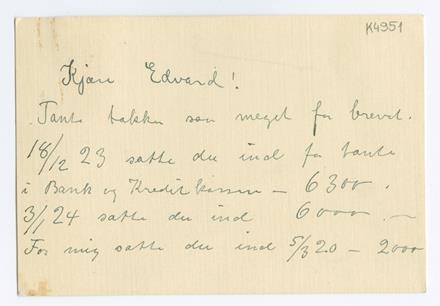 K4951
Kjære Edvard!
Tante takker saa meget for brevet.
18/12 23 satte du ind for tante
i Bank og Kreditkassen – 6300.
3/1 24 satte du ind 6000.–
For mig satte du ind 5/3 20 – 2000